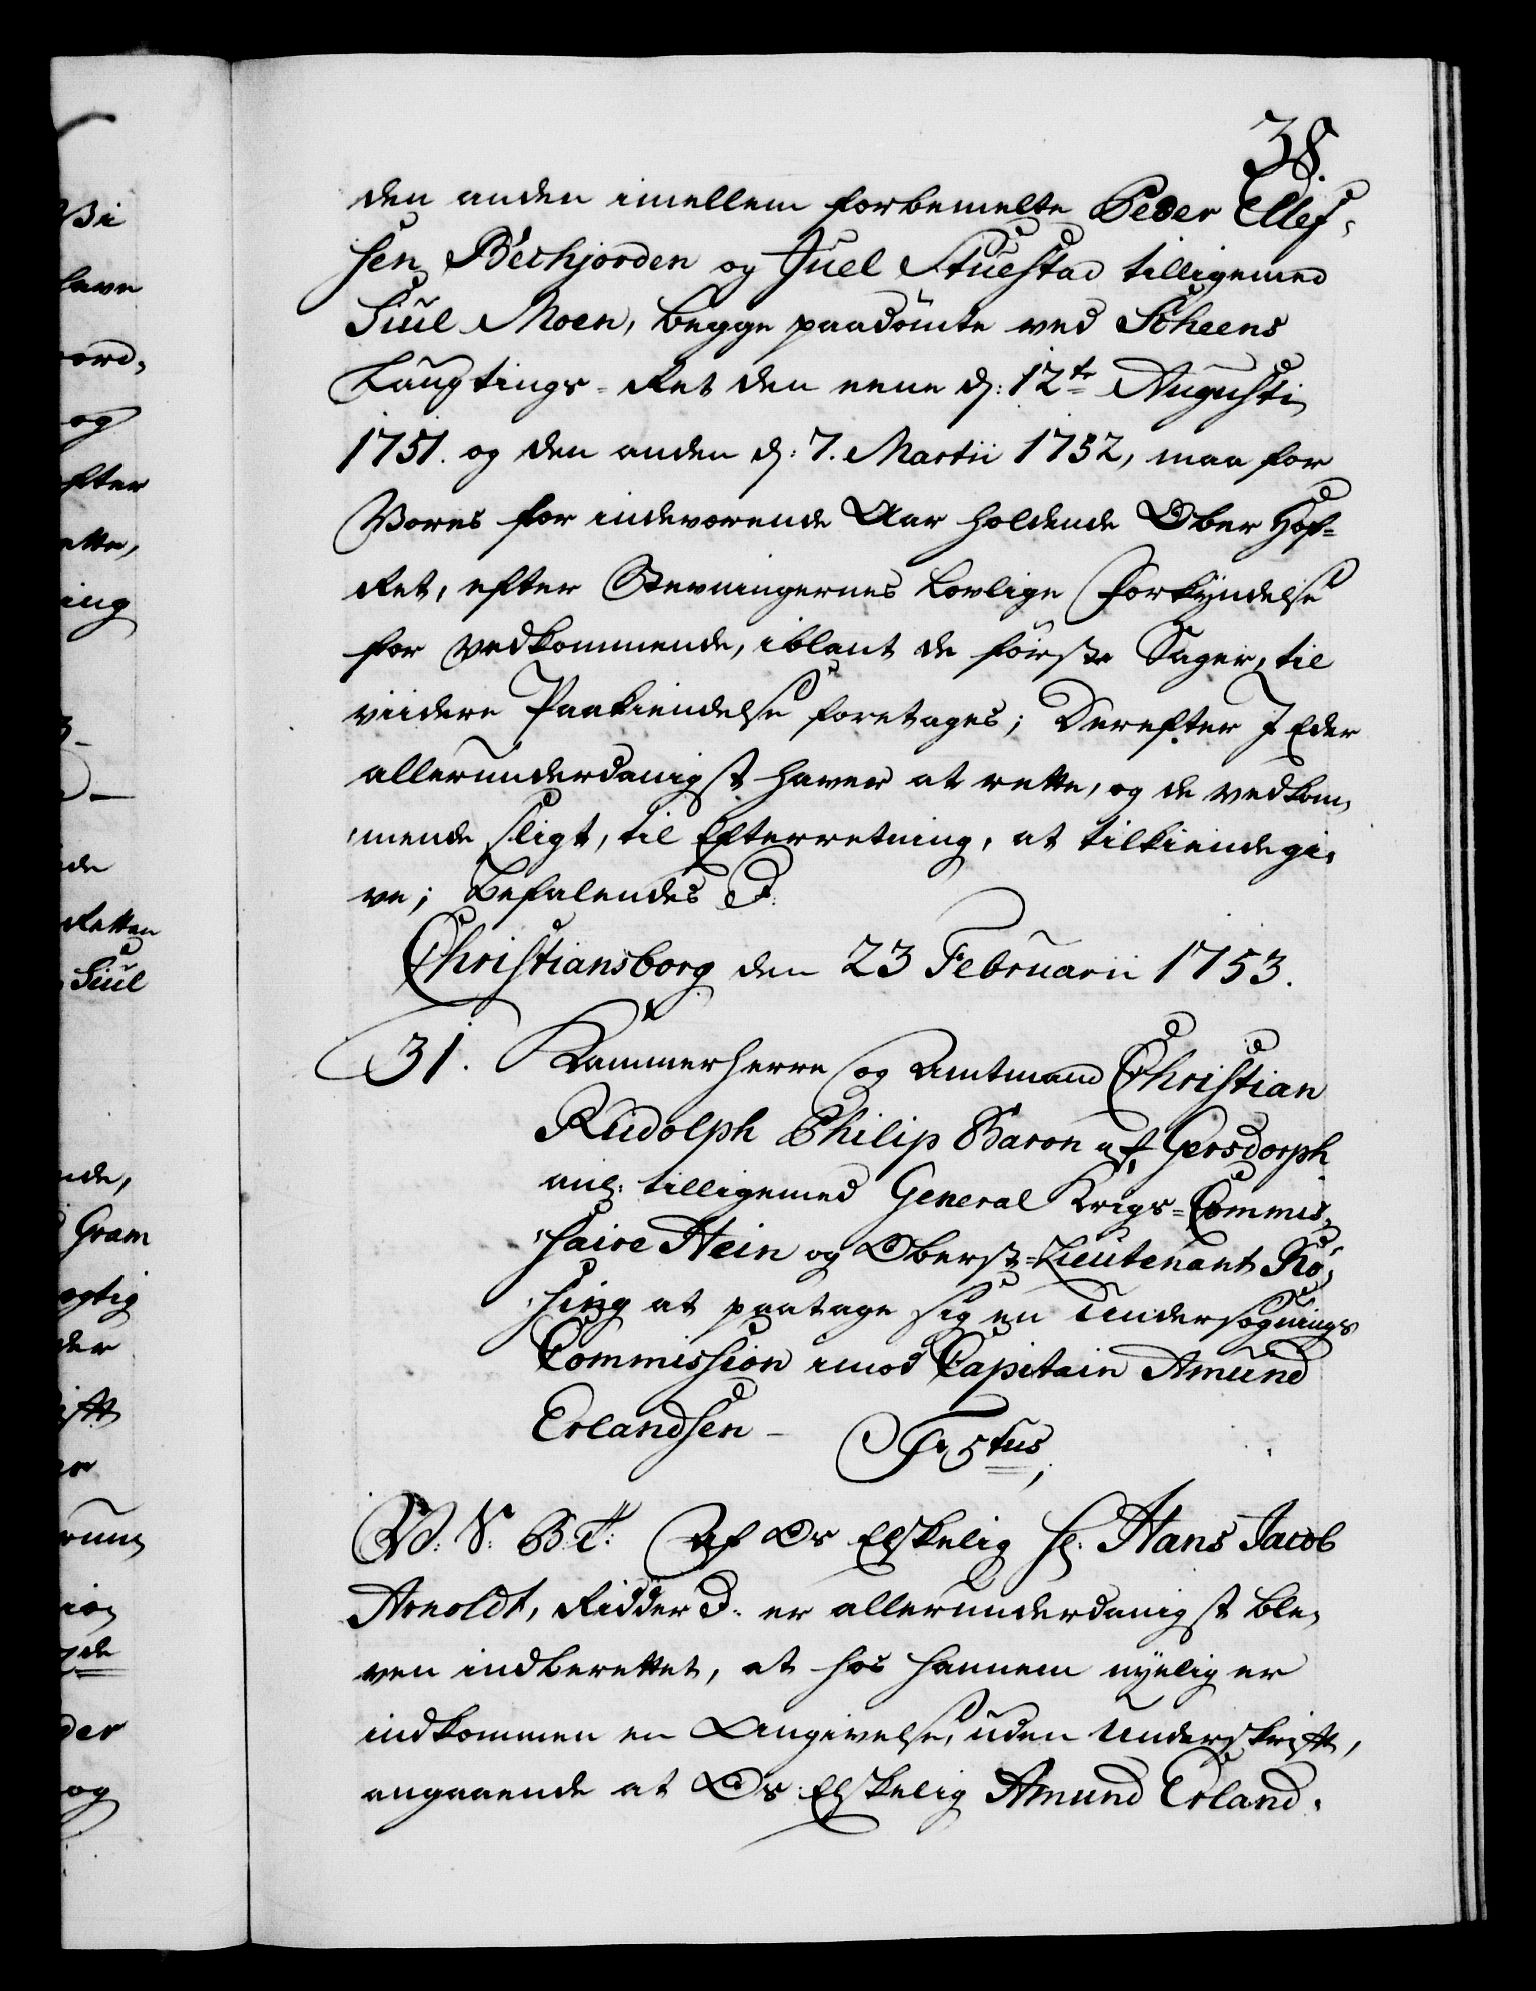 38.
den anden imellem forbemelte Peder Ellef,
sen Bechjorden og Juel Stuestad tilligemed
Siul Moen, begge paadömte ved Scheens
Laugtings-Ret den eene d: 12te Augusti
1751. og den anden d: 7. Martii 1752, maa for
Vores for indeværende Aar holdende Ober Hof=
Ret, efter Stevningernes Lovlige Forkÿndelse
for vedkommende, iblant de förste Sager, til
viidere Paakiendelse foretages; Derefter I Eder
allerunderdanigst haver at rette, og de vedkom,
mende sligt, til Efterretning, at tilkiendegi,
ve; Befalendes &.
Christiansborg den 23 Februarii 1753.
31. Kammerherre og Amtmand Christian
Rudolph Philip Baron af Gersdorph
anl: tilligemed General Krigs=Commis,
saire Hein og Oberst=Lieutenant Rö,
sing at paatage sig en Undersögnings
Commission imod Capitain Amund
Erlandsen –
Fr 5tus,
V: S: B: T: Af Os Elskelig Hr. Hans Jacob
Arnoldt, Ridder &. er allerunderdanigst ble,
ven indberettet, at hos hannem nÿelig er
indkommen en Angivelse, uden Underskrift,
angaaende at Os Elskelig Amund Erland,
Vi
have
og
efter
ette,
ing
de
Retten
Siul
nde,
Gram
der
der
og